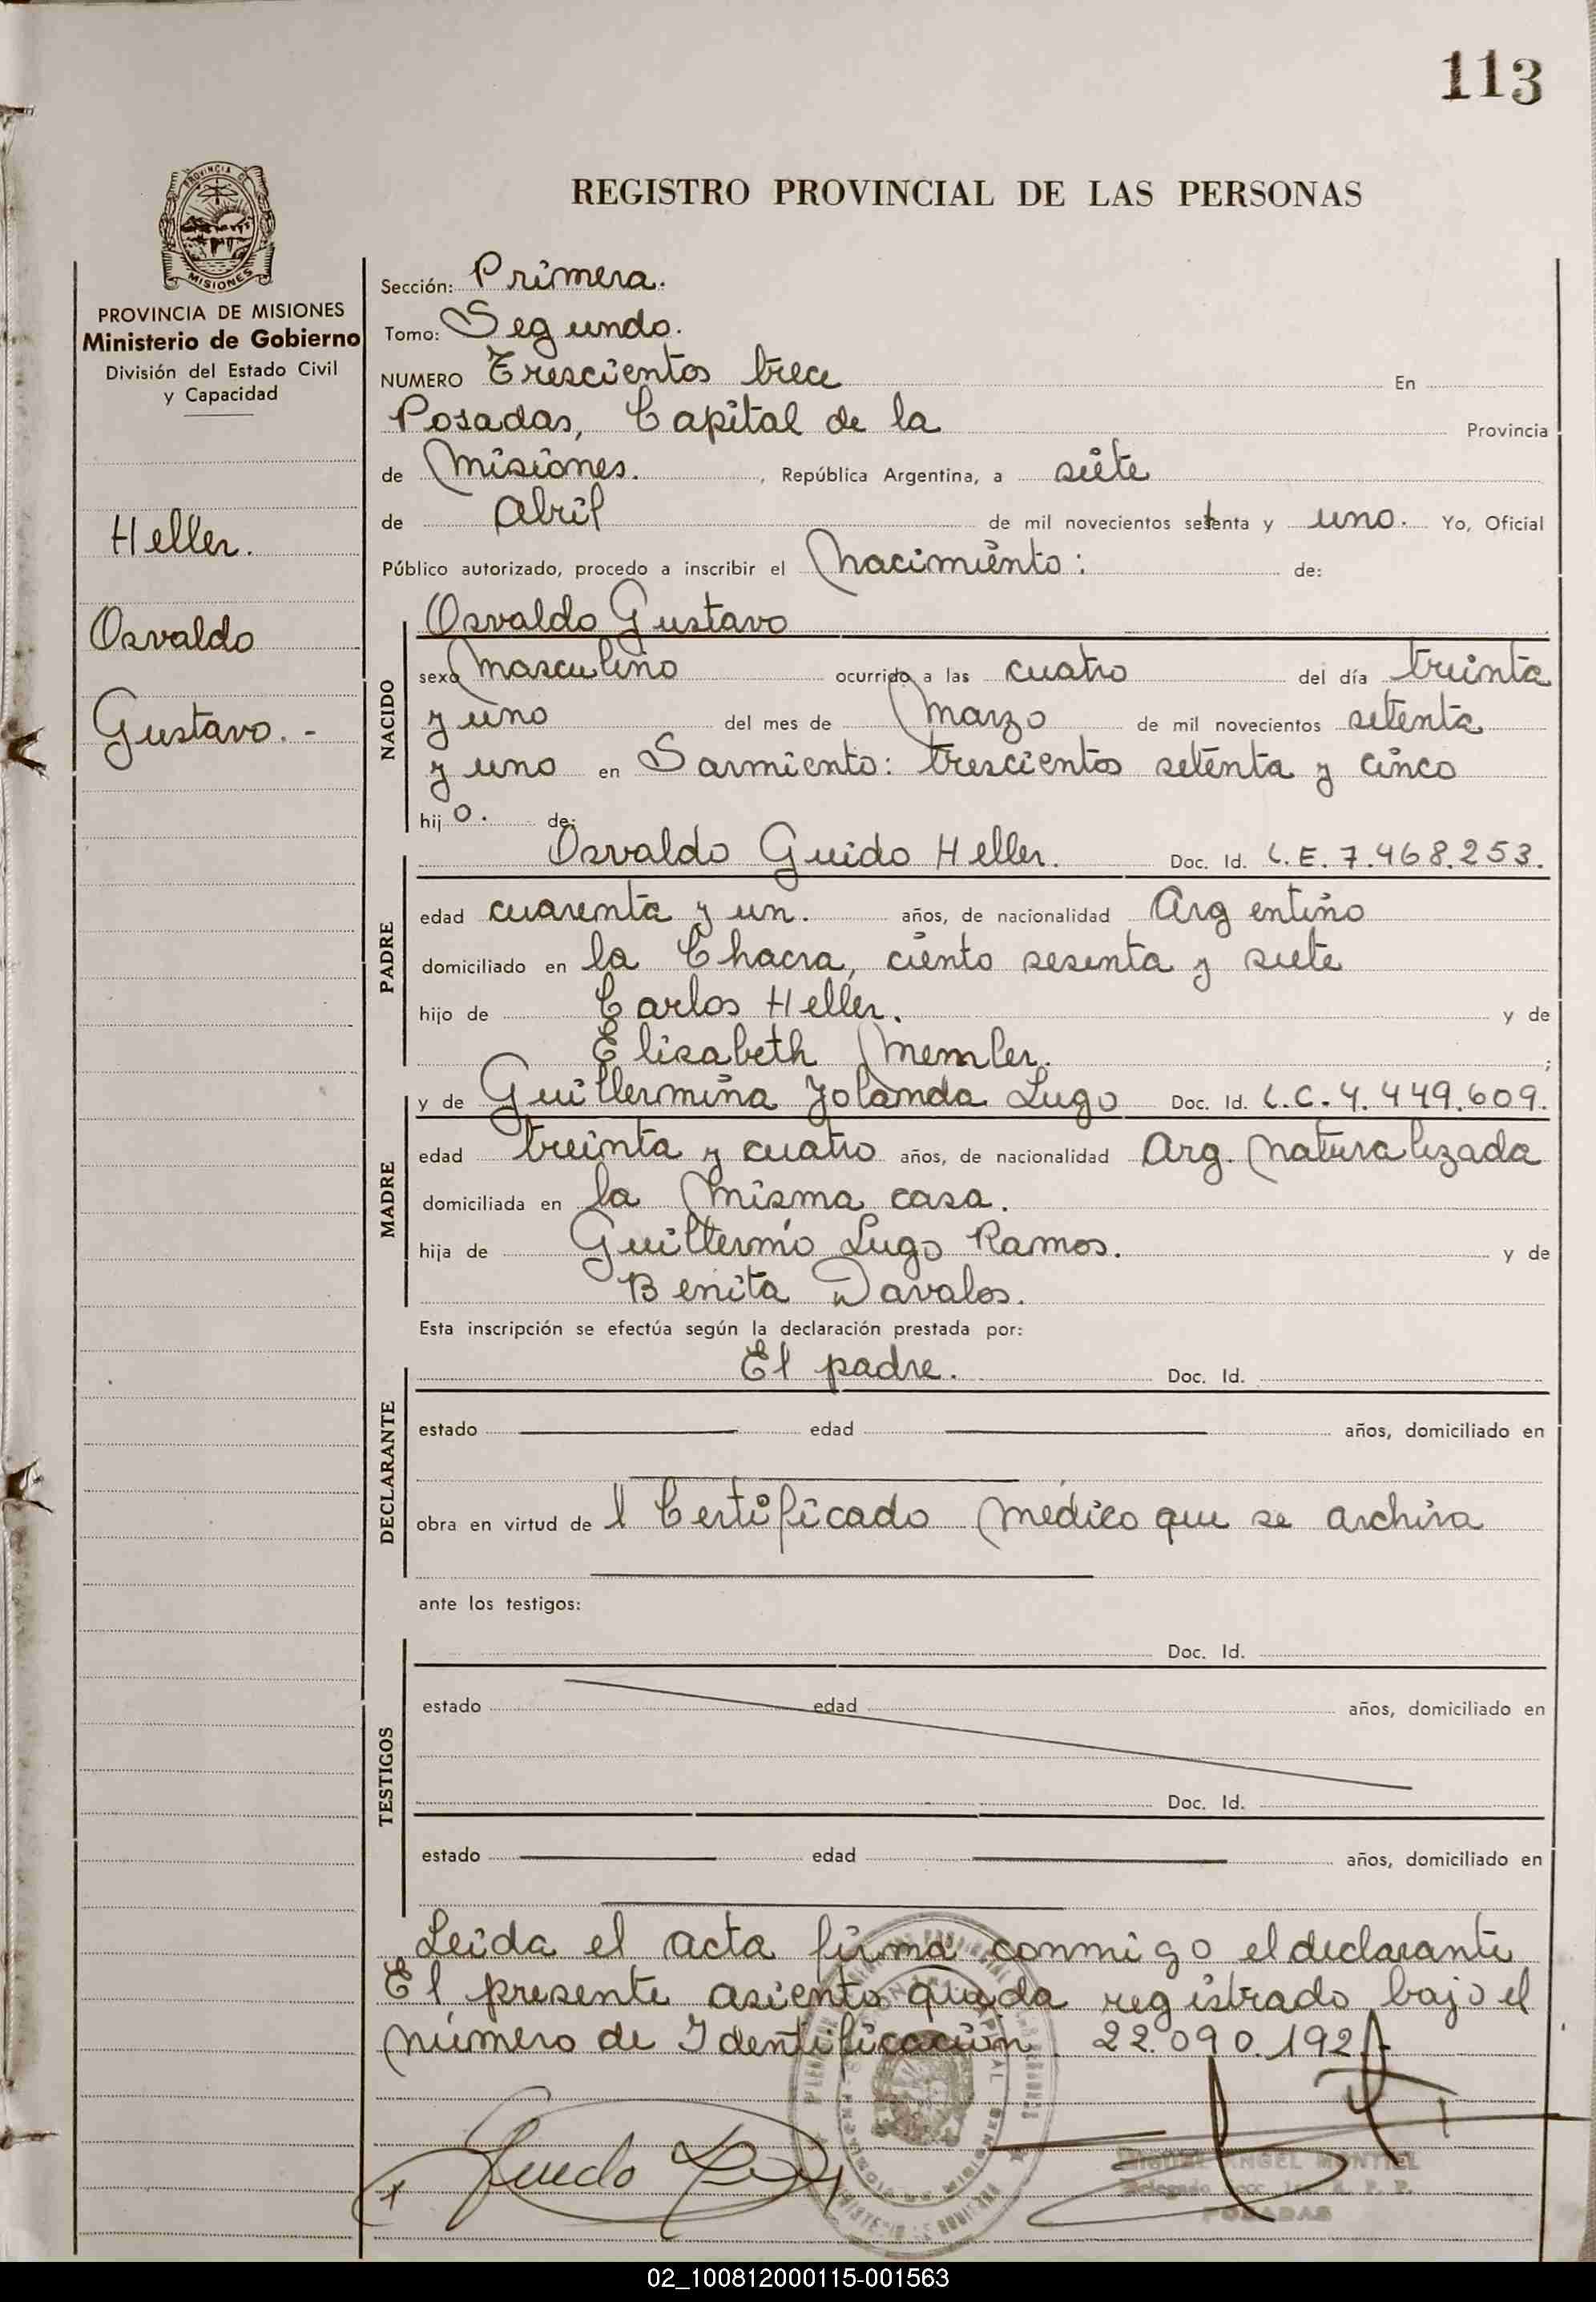 113
PROVINCIA DE
MISIONES
REGISTRO PROVINCIAL DE LAS PERSONAS
PROVINCIA DE MISIONES
Ministerio de Gobierno
División del Estado Civil
y Capacidad
Heller.
Osvaldo
Gustavo. -
Sección: Primera.
Tomo: Segundo.
NUMERO Trescientos trece En
Posadas, Capital de la Provincia
de Misiones. , República Argentina, a siete
de Abril de mil novecientos setenta y uno. Yo, Oficial
Público autorizado, procedo a inscribir el Nacimiento: de:
NACIDO
Osvaldo Gustavo
sexo Masculino ocurrido a las cuatro del día treinta
y uno del mes de Marzo de mil novecientos setenta
y uno en Sarmiento: trescientos setenta y cinco
hijo. de:
PADRE
Osvaldo Guido Heller. Doc. Id. L.E. 7.468.253.
edad cuarenta y un. años, de nacionalidad Argentino
domiciliado en la Chacra, ciento sesenta y siete
hijo de Carlos Heller. y de
Elisabeth Memler. ;
MADRE
y de Guillermina Yolanda Lugo Doc. Id. L.C. 4.449.609.
edad treinta y cuatro años, de nacionalidad Arg. Naturalizada
domiciliada en la misma casa.
hija de Guillermo Lugo Ramos. y de
Benita Davalos.
Esta inscripción se efectúa según la declaración prestada por:
DECLARANTE
El padre. Doc. Id.
estado edad años, domiciliado en
obra en virtud de l Certificado Médico que se archiva
ante los testigos:
TESTIGOS
Doc. Id.
estado edad años, domiciliado en
Doc. Id.
estado edad años, domiciliado en
Leida el acta firma conmigo el declarante
El presente asiento queda registrado bajo el
número de Identificación 22.090.192
MIGUEL ANGEL MONTIEL
POSADAS
02_100812000115-001563